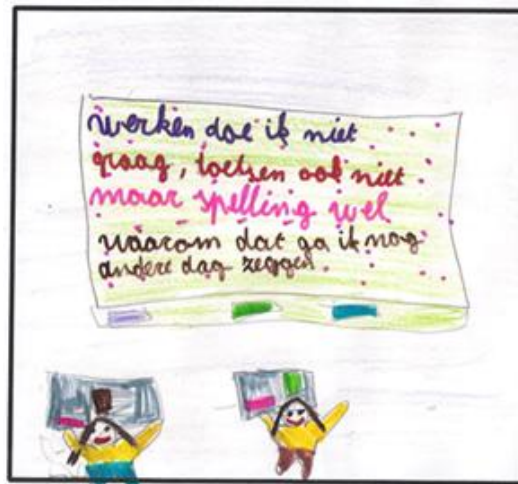 werken doe ik niet
graag, toetsen ook niet
maar spelling wel
waarom dat ga ik nog
andere dag zeggen